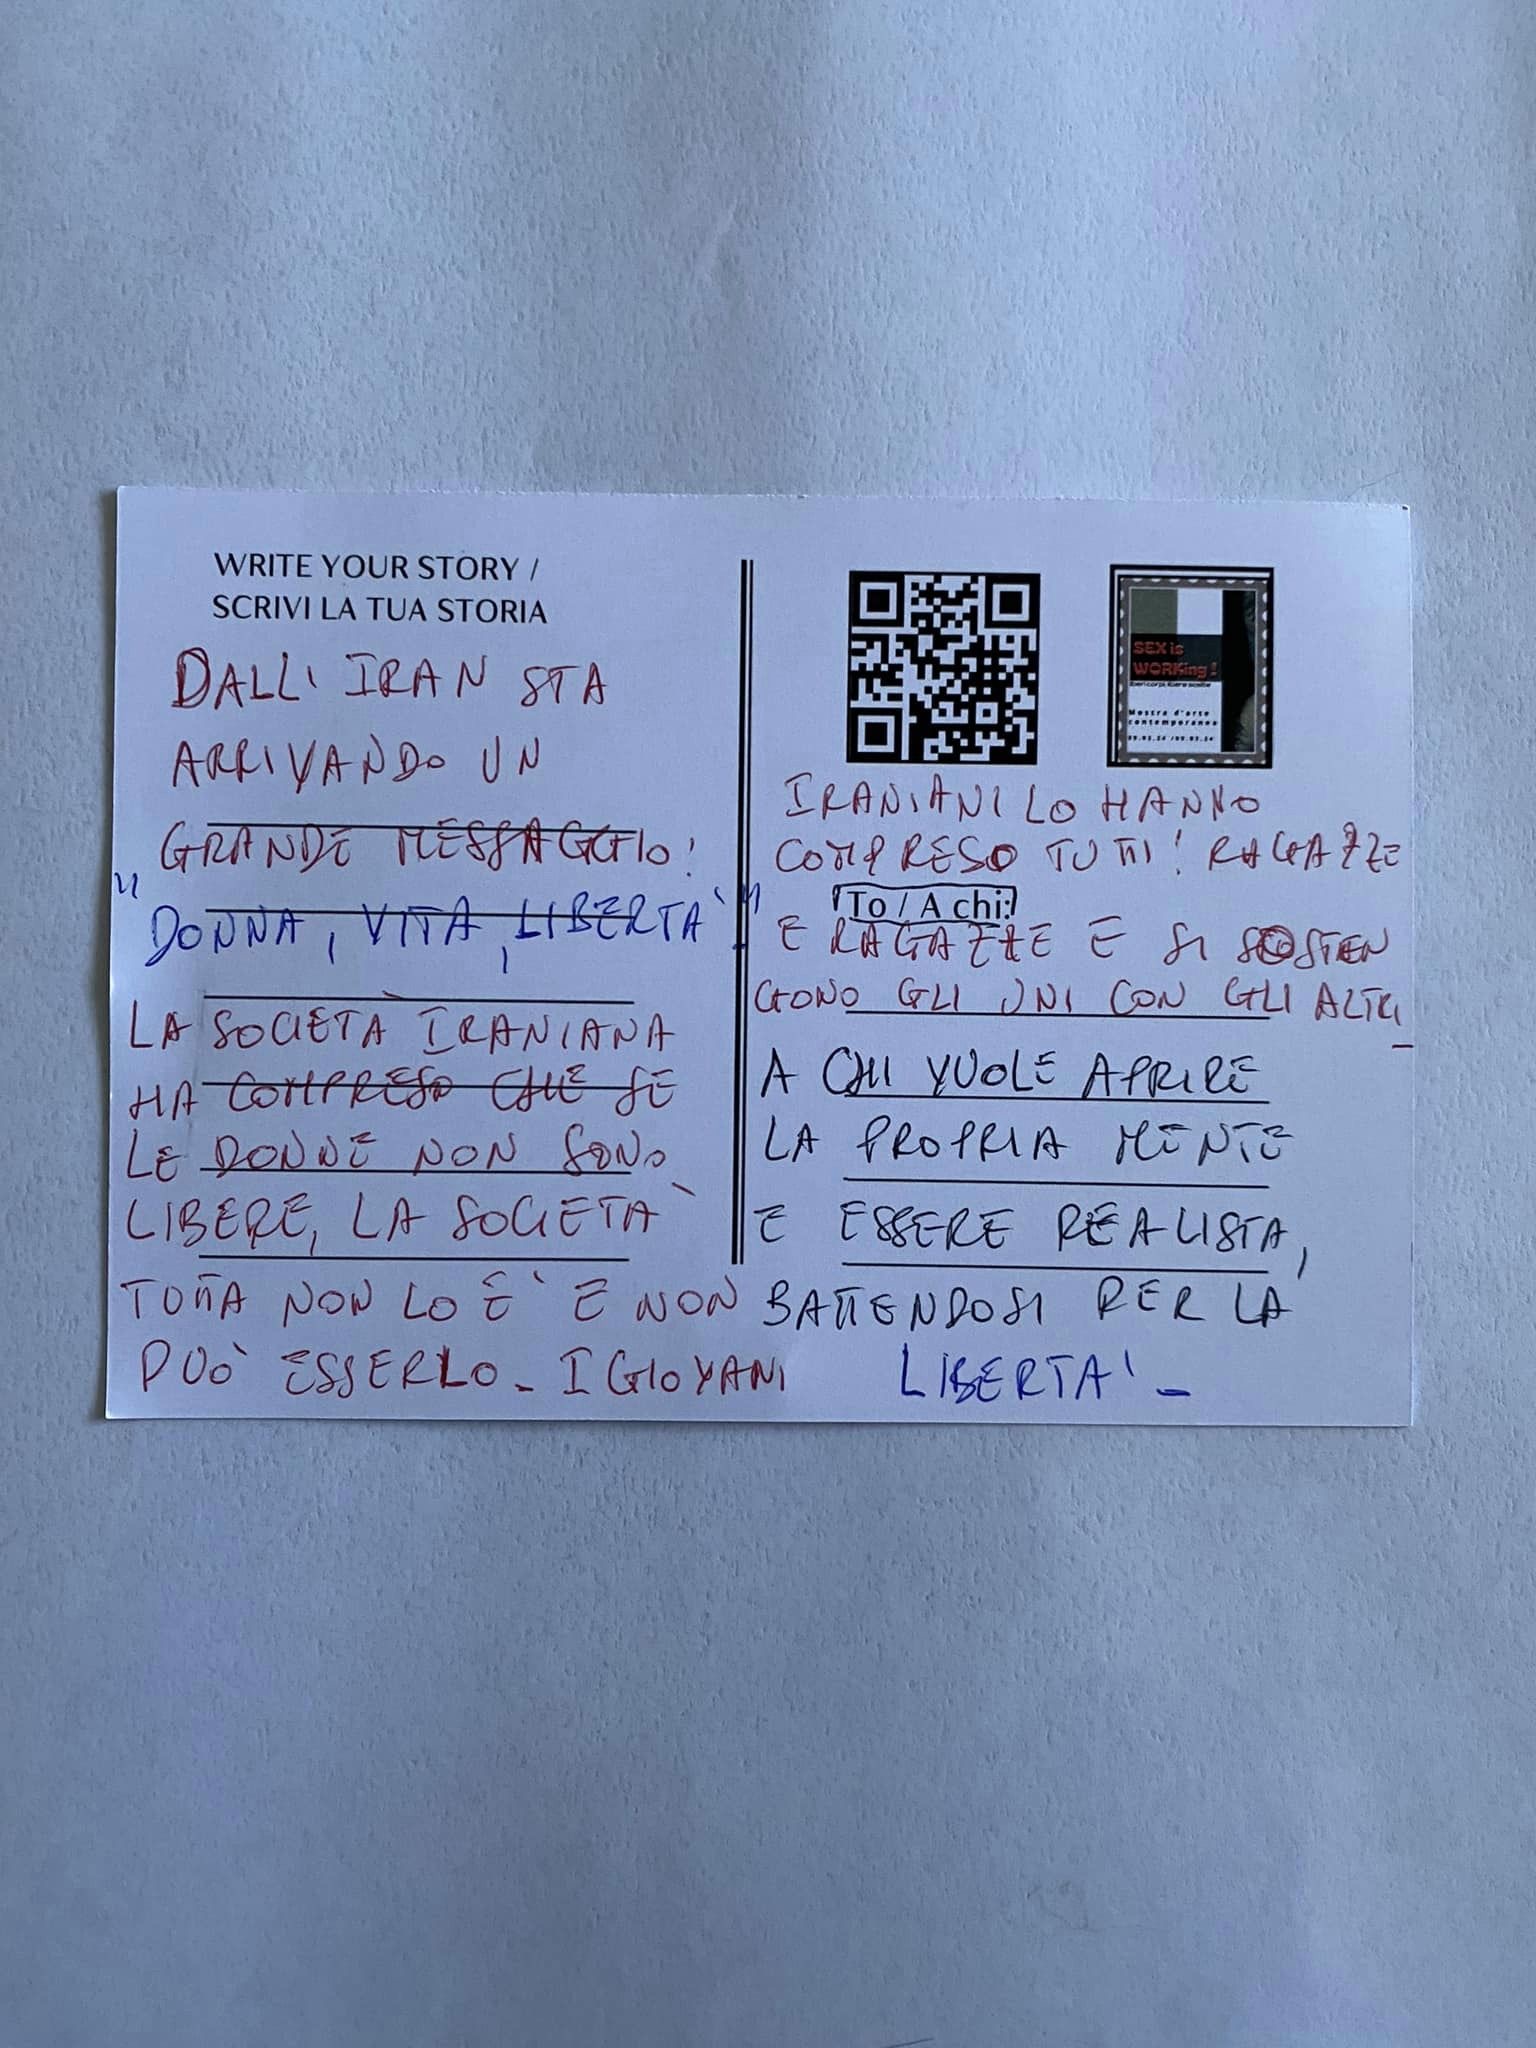 WRITE YOUR STORY /
SCRIVI LA TUA STORIA
DALL' IRAN STA
ARRIVANDO UN
GRANDE MESSAGGIO:
"DONNA, VITA, LIBERTÀ".
LA SOCIETÀ IRANIANA
HA COMPRESO CHE SE
LE DONNE NON SONO
LIBERE, LA SOCIETÀ
TUTTA NON LO È E NON
PUÒ ESSERLO. I GIOVANI
SEX is
WORKing !
liberi corpi, libere scelte
Mostra d'arte
contemporanea
IRANIANI LO HANNO
COMPRESO TUTTI! RAGAZZE
To / A chi:
E RAGAZZE E SI SOSTEN
GONO GLI UNI CON GLI ALTRI
A CHI VUOLE APRIRE
LA PROPRIA MENTE
E ESSERE REALISTA,
BATTENDOSI PER LA
LIBERTA' -